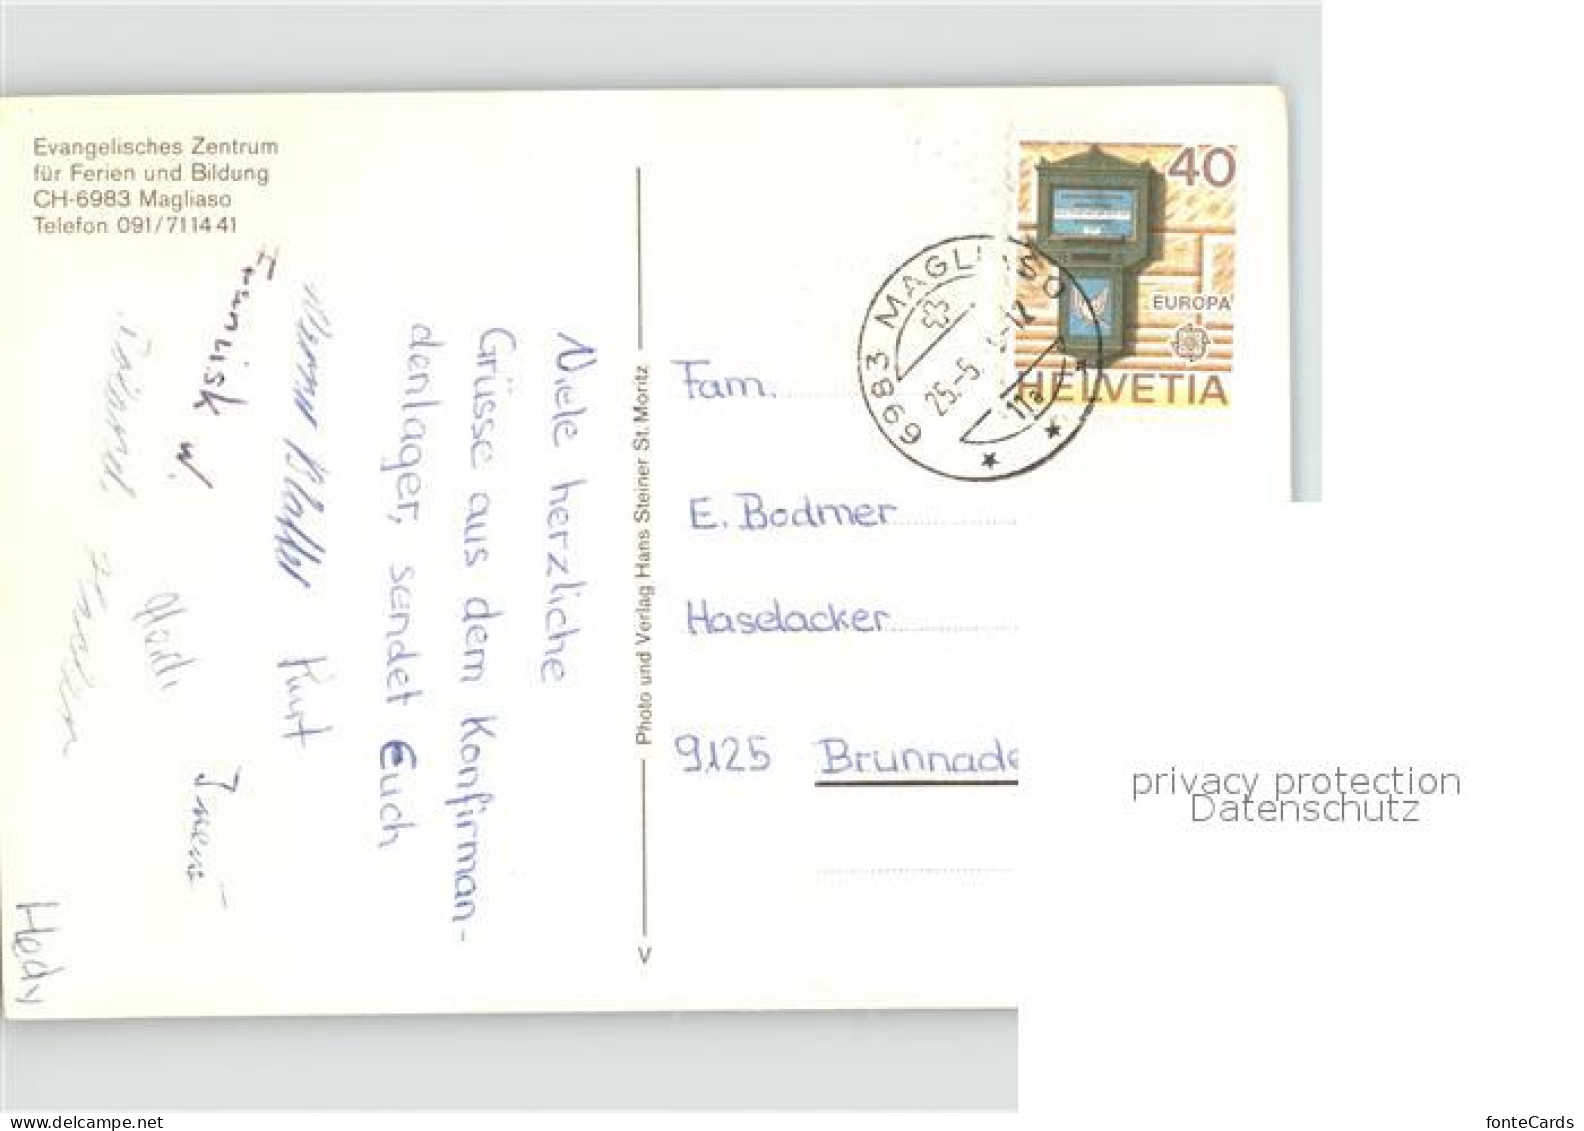 Evangelisches Zentrum
für Ferien und Bildung
CH-6983 Magliaso
Telefon 091/71 14 41
Viele herzliche
Grüsse aus dem Konfirman-
denlager, sendet Euch
Kurt
Heidi
Hedy
Photo und Verlag Hans Steiner St. Moritz
40
EUROPA
HELVETIA
6983 MAGLIASO
25.-5
11a
Fam.
E. Bodmer
Haselacker
9125 Brunnade
privacy protection
Datenschutz
fonteCards